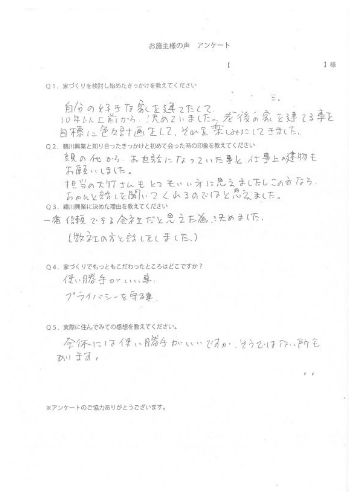 お施主様の声　アンケート
【　　　　　　　　　　】様
Q１、家づくりを検討し始めたきっかけを教えてください
自分の好きな家を建てたくて
10年以上前から、決めていました。老後の家を建てる事を
目標に色々計画をして、それを楽しみにしてきました。
Q２、鶴川興業と知り合ったきっかけと初めて会った時の印象を教えてください
親の代から、お世話になっていた事と仕事上の建物も
お願いしました。
担当の大竹さんもとてもいい方に思えましたしこの方なら、
ちゃんと話しを聞いてくれるのではと思えました。
Q３、鶴川興業に決めた理由を教えてください
一番信頼できる会社だと思えた為、決めました。
(数社の方と話しをしました。)
Q４、家づくりでもっともこだわったところはどこですか？
使い勝手がいい事
プライバシーを守る事
Q５、実際に住んでみての感想を教えてください。
全体には使い勝手がいいですが、そうではない所も
あります。
※アンケートのご協力ありがとうございます。